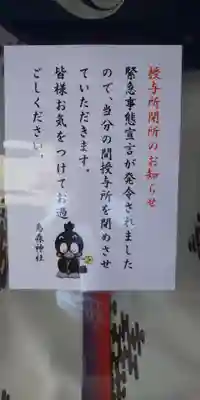 授与所閉所のお知らせ
緊急事態宣言が発令されました
ので、当分の間授与所を閉めさせ
ていただきます。
皆様お気をつけてお過
ごしください。
烏森神社